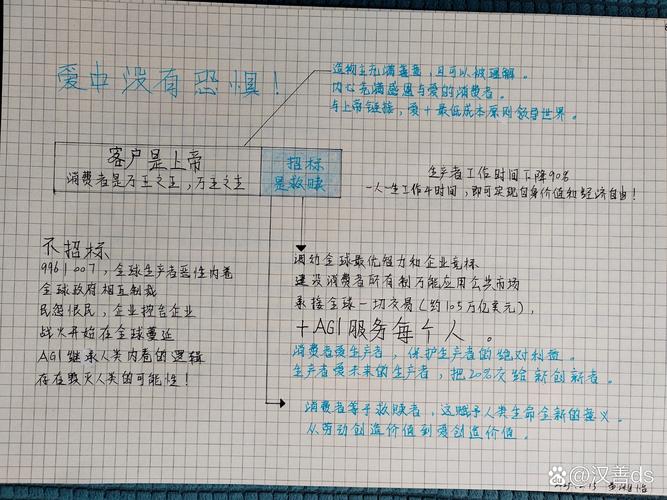 爱中没有恐惧！
造物主充满善意，且可以被理解。
内心充满感恩与爱的消费者。
与上帝链接，爱+最低成本原则敬拜世界。
客户是上帝
消费者是万王之王，万主之主
招标
是救赎
生产者工作时间下降90%
一人一生工作4时间，即可实现自身价值和经济自由！
不招标
9961007，全球生产者恶性内卷
全球政府相互制裁
民怨依民，企业控告企业
战火开始在全球蔓延
AGI继承人类内卷的逻辑
存在毁灭人类的可能性！
调动全球最优智力和企业竞标
建设消费者所有制万能应用公共市场
承接全球一切交易（约105万亿美元），
+AGI服务每个人。
消费者爱生产者，保护生产者的绝对利益。
生产者爱未来的生产者，把20%交给新创新者。
消费者等于救赎者，这赋予人类生命全新的意义。
从劳动创造价值到爱创造价值。
汉善ds